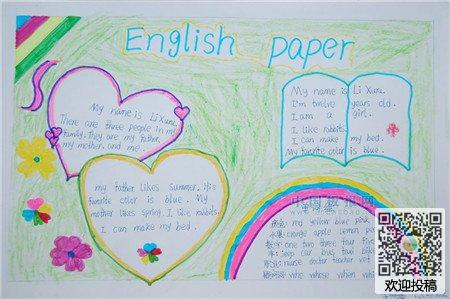 English paper
My name is Li Xuru.
There are three people in my
family. They are my father
my mother. and me.
my father likes Summer. His
favorite color is blue. My
mother likes spring. I like rabbits.
I can make my bed.
My name is Li Xuru.
I'm twelve years old.
I am a girl.
I like rabbits.
I can make my bed.
My favorite color is blue.
red yellow blue pink
orange apple lemon
one two three four five
jeep car bus taxi
nurse doctor teacher vet
who whose when
欢迎投稿